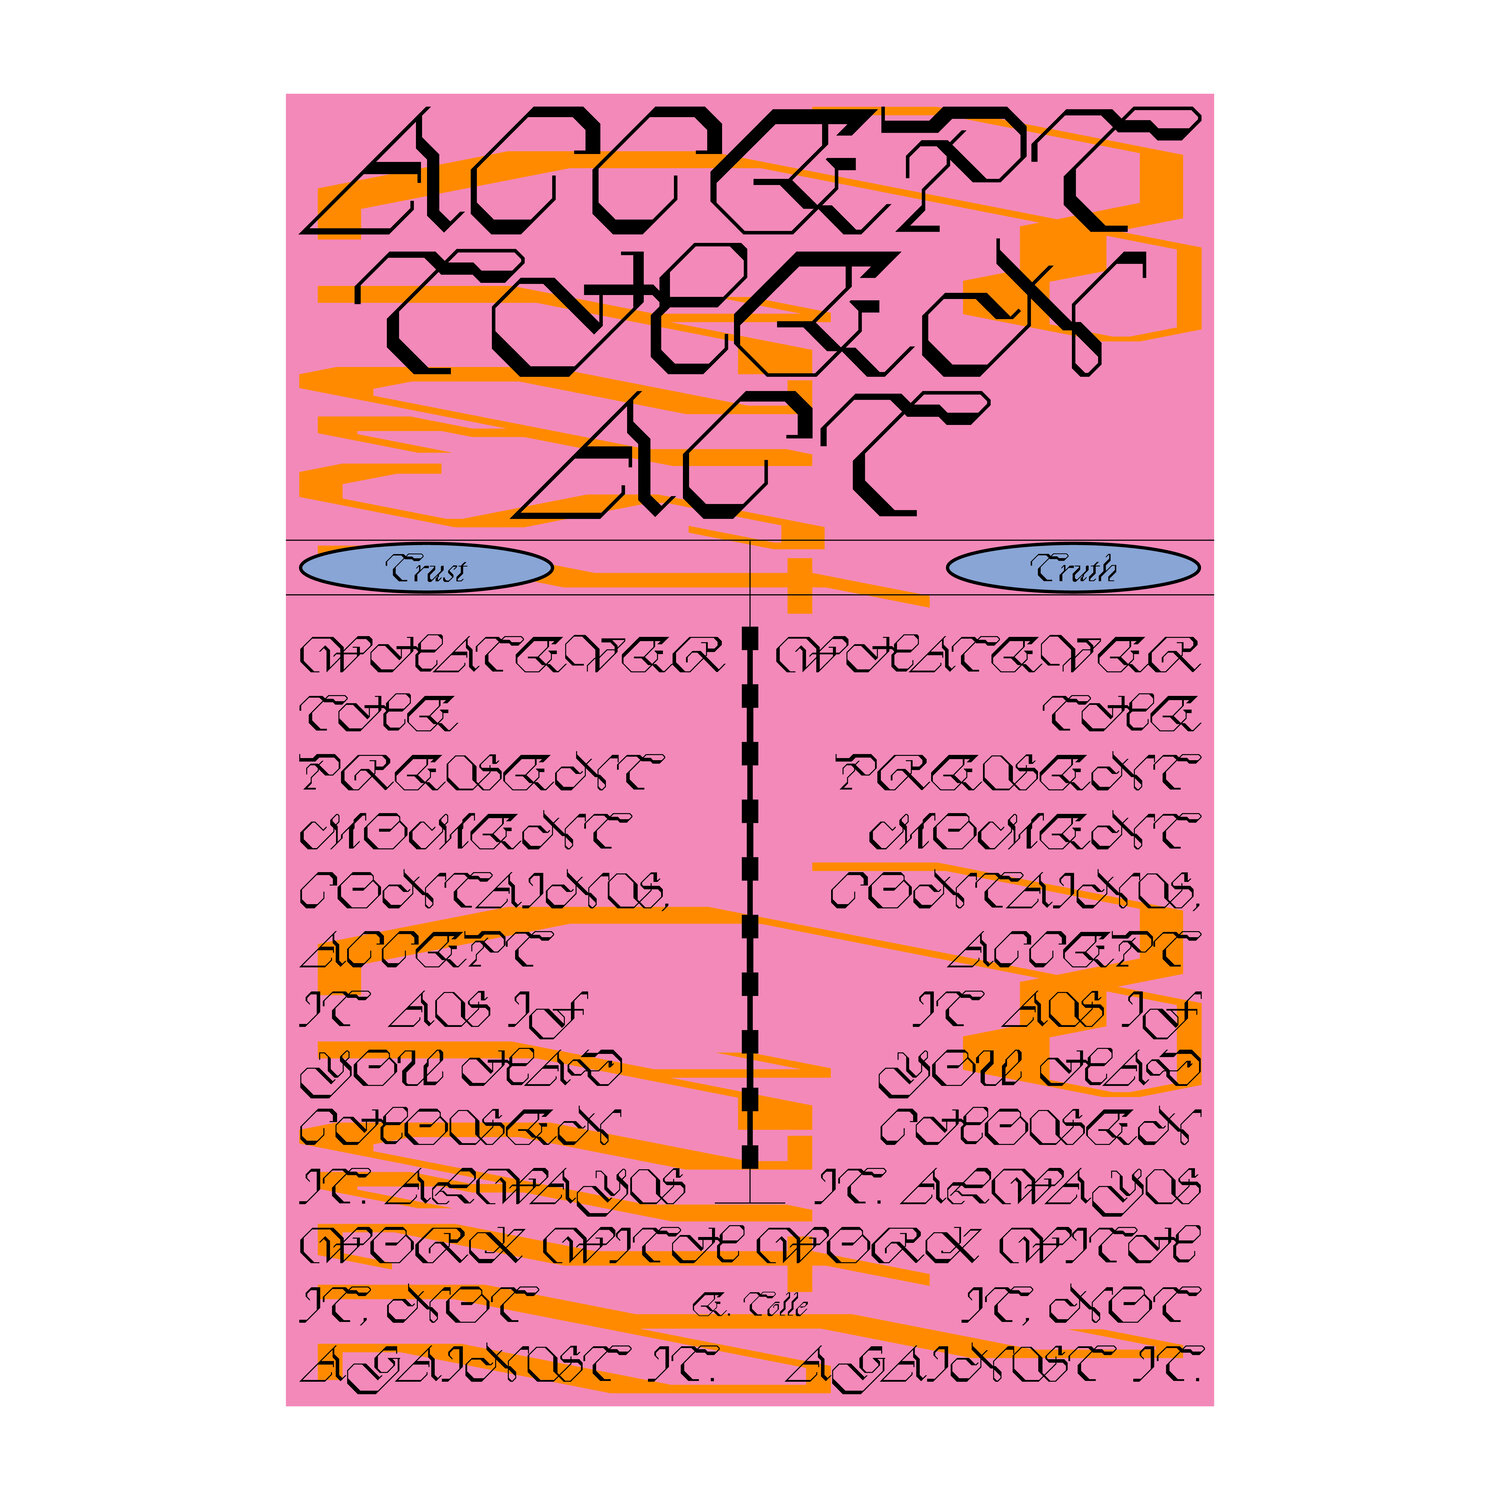 ACCEPT
THEN
ACT
Trust
Truth
WHATEVER
THE
PRESENT
MOMENT
CONTAINS,
ACCEPT
IT AS IF
YOU HAD
CHOSEN
IT. ALWAYS
WORK WITH
IT, NOT
AGAINST IT.
WHATEVER
THE
PRESENT
MOMENT
CONTAINS,
ACCEPT
IT AS IF
YOU HAD
CHOSEN
IT. ALWAYS
WORK WITH
IT, NOT
AGAINST IT.
E. Tolle